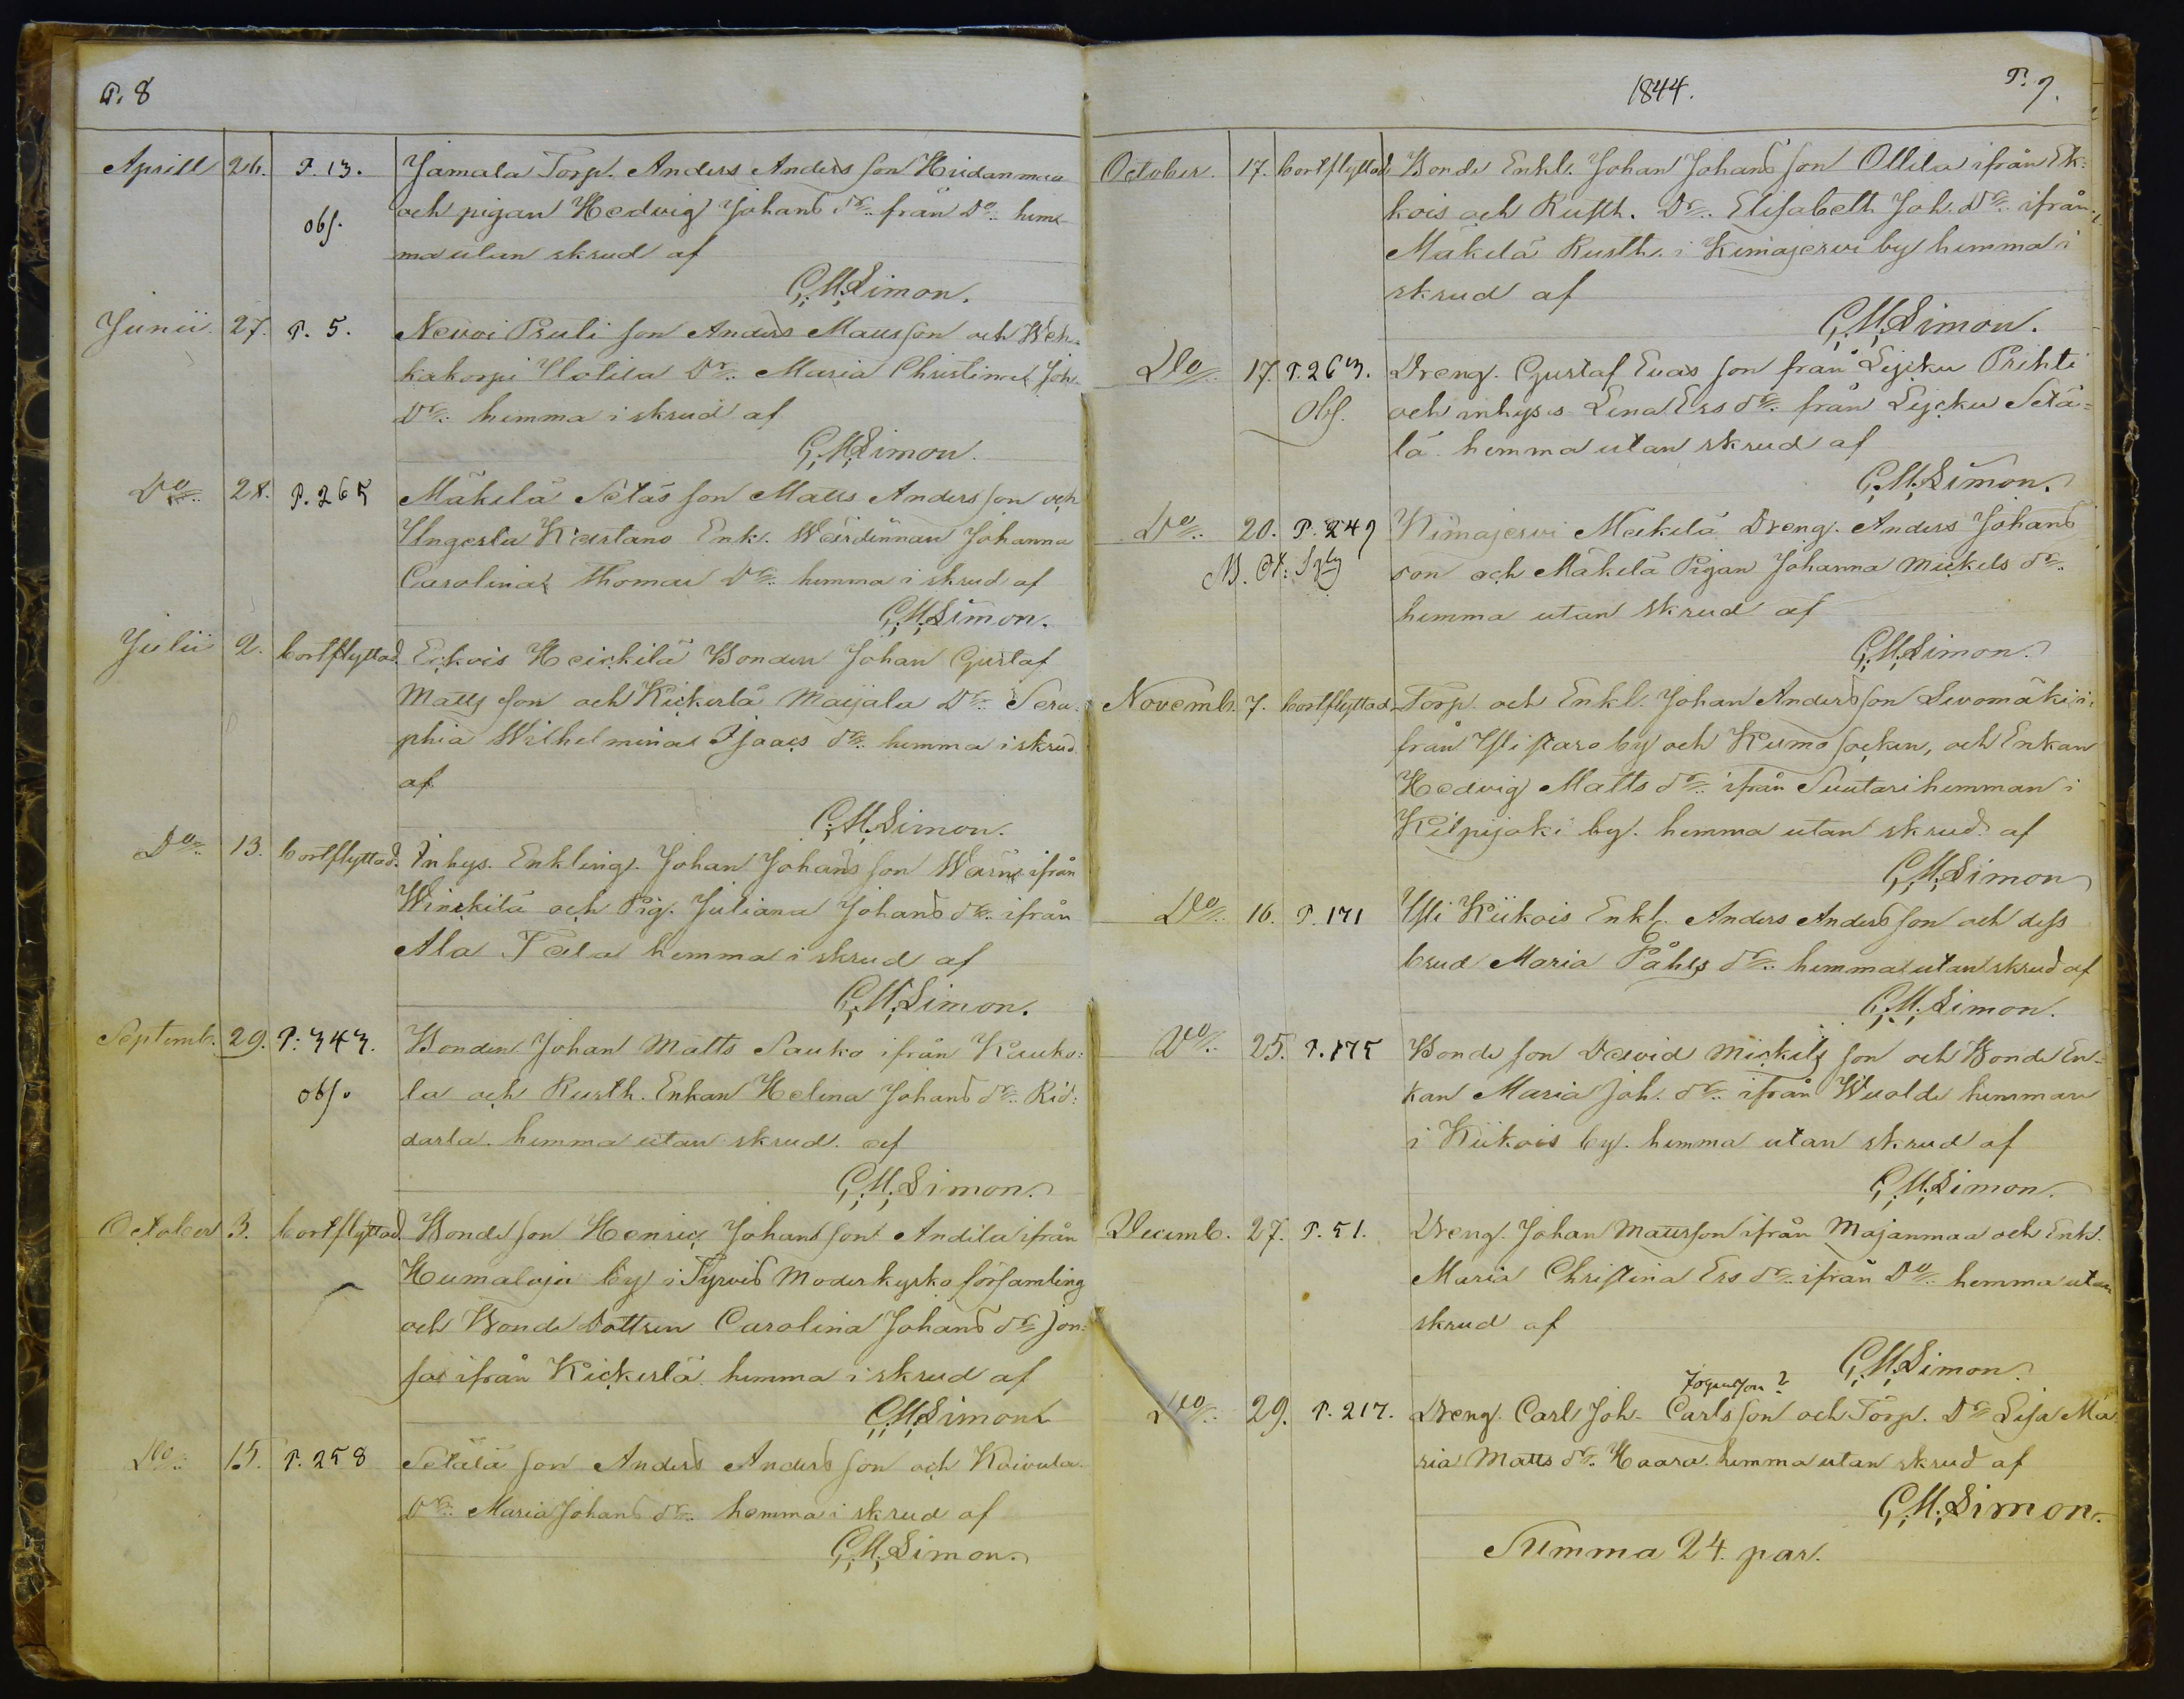 P. 8
Aprill 26. P. 13. Jamala Torp. Anders Anders son Hiidanmaa
obs. och pigan Hedvig Johans dr. från Do. hem-
ma utan skrud af
G. M. Simon.
Junii 27. P. 5. Nevoi Pruli son Anders Matts son och Weh-
kakorpi Ylolila Dr. Maria Christina Joh.
Dr. hemma i skrud af
G. M. Simon.
Do. 28. P. 265 Mäkilä Setäs son Matts Anders son och
Yngerla Kiertano Enk. Wärdinnan Johanna
Carolina Thomas Dr. hemma i skrud af
G. M. Simon.
Julii 2. bortflyttad. Eckois Heickilä Bonden Johan Gustaf
Matts son och Kickerlä Maijala Dr. Sera-
phia Wilhelmina Isaacs dr. hemma i skrud
af
G. M. Simon.
Do. 13. bortflyttad. Inhys. Enkling. Johan Johans son Warn ifrån
Winckilä och Pig. Juliana Johans dr. ifrån
Ala Tala hemma i skrud af
G. M. Simon.
Septemb. 29. P. 343. Bonden Johan Matts Sauko ifrån Kauko-
obs. la och Rusth. Enkan Helena Johans dr. Rid-
darla hemma utan skrud af
G. M. Simon.
October 3. bortflyttad Bonde son Henric Johans son Andila ifrån
Humaloja by i Tyrvis Moderkyrko församling
och Bonde Dottren Carolina Johans dr Jon-
fas ifrån Kickerlä hemma i skrud af
G. M. Simon
Do. 15. P. 258 Setälä son Anders Anders son och Koivula
Dr. Maria Johans dr. hemma i skrud af
G. M. Simon.
1844. P. 9.
October. 17. bortflyttad Bonde Enkl. Johan Johans son Ollila ifrån Ek-
kois och Rusth. Dr. Elisabeth Joh. dr. ifrån
Mäkelä Rusth. i Kimajerwi by hemma i
skrud af
G. M. Simon.
Do. 17. P. 263. Dreng. Gustaf Euas son från Lejcku Prihti
Obs. och inhyses Lena Ers dr. från Lejcku Setä-
lä hemma utan skrud af
G. M. Simon.
Do. 20. P. 249 Kimajerwi Meikilä Dreng. Anders Johans
son och Mäkelä Pigan Johanna Mickels dr.
hemma utan skrud af
G. M. Simon.
Novemb. 7. bortflyttad Torp. och Enkl. Johan Anders son Sivomäki i-
från Yli staro by och Kumo socken, och Enkan
Hedvig Matts dr. ifrån Suutari hemman i
Kilpijoki by. hemma utan skrud af
G. M. Simon
Do. 16. P. 171 Yli Kiikois Enkl. Anders Anders son och dess
brud Maria Påhls dr. hemma utan skrud af
G. M. Simon.
Do. 25. P. 175 Bonde son David Mickels son och Bonde En-
kan Maria Joh. dr. ifrån Wuolde hemman
i Kiikois by. hemma utan skrud af
G. M. Simon.
Decemb. 27. P. 51. Dreng. Johan Matts son ifrån Majanmaa och Enk.
Maria Christina Ers dr. ifrån Do. hemma utan
skrud af
G. M. Simon.
Do. 29. P. 217. Dreng. Carl Joh. Carls son och Torp. Dr Lisa Ma-
ria Matts dr. Haara hemma utan skrud af
G. M. Simon.
Summa 24. par.